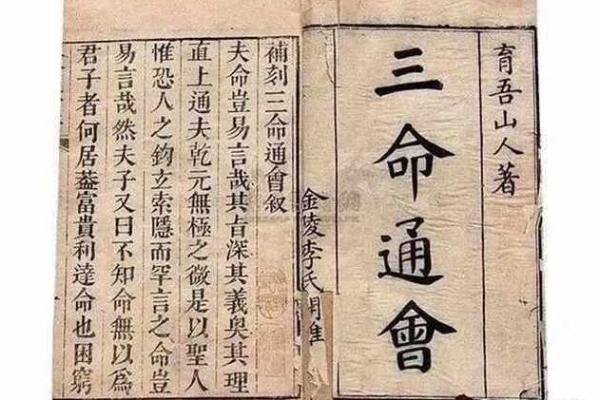 育吾山人著
三命通會
金陵李氏
補刻三命通會叙
夫命豈易言哉其旨深其義奥其理
直上通夫乾元無極之微是以聖人
惟恐人之鈎玄索隱而罕言之命豈
易言哉然夫子又曰不知命無以為
君子者何居葢富貴利達命也困窮